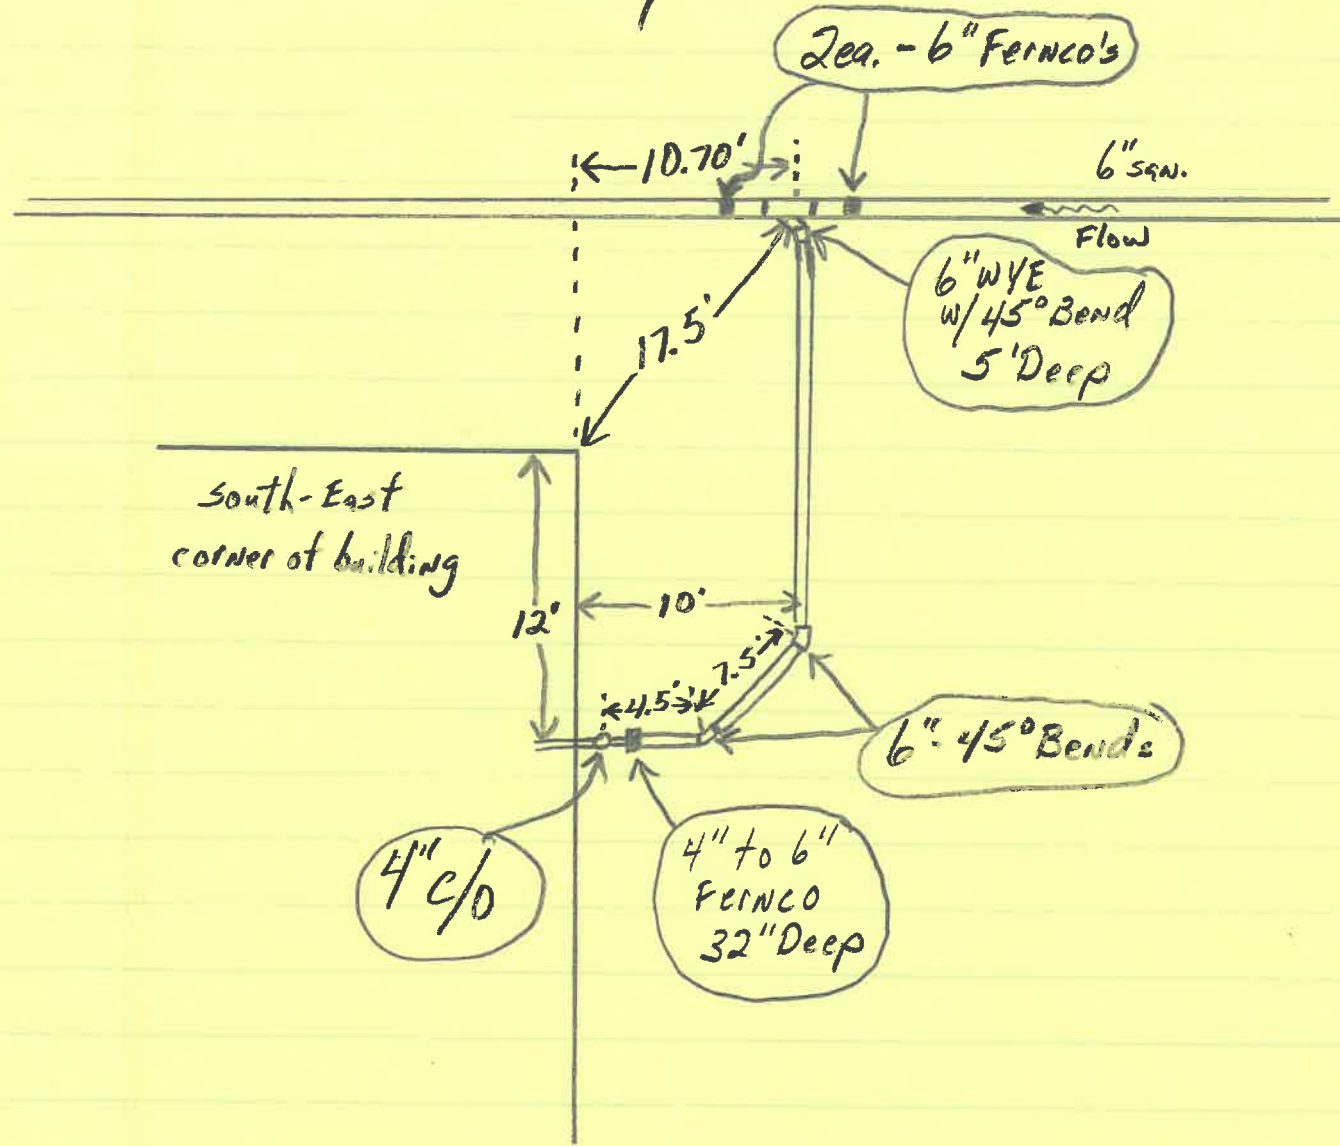 2ea. - 6" Fernco's
10.70'
6" san.
Flow
17.5'
6" WYE
w/ 45° Bend
5' Deep
South-East
corner of building
12'
10'
7.5'
4.5'
6"- 45° Bends
4" c/o
4" to 6"
Fernco
32" Deep